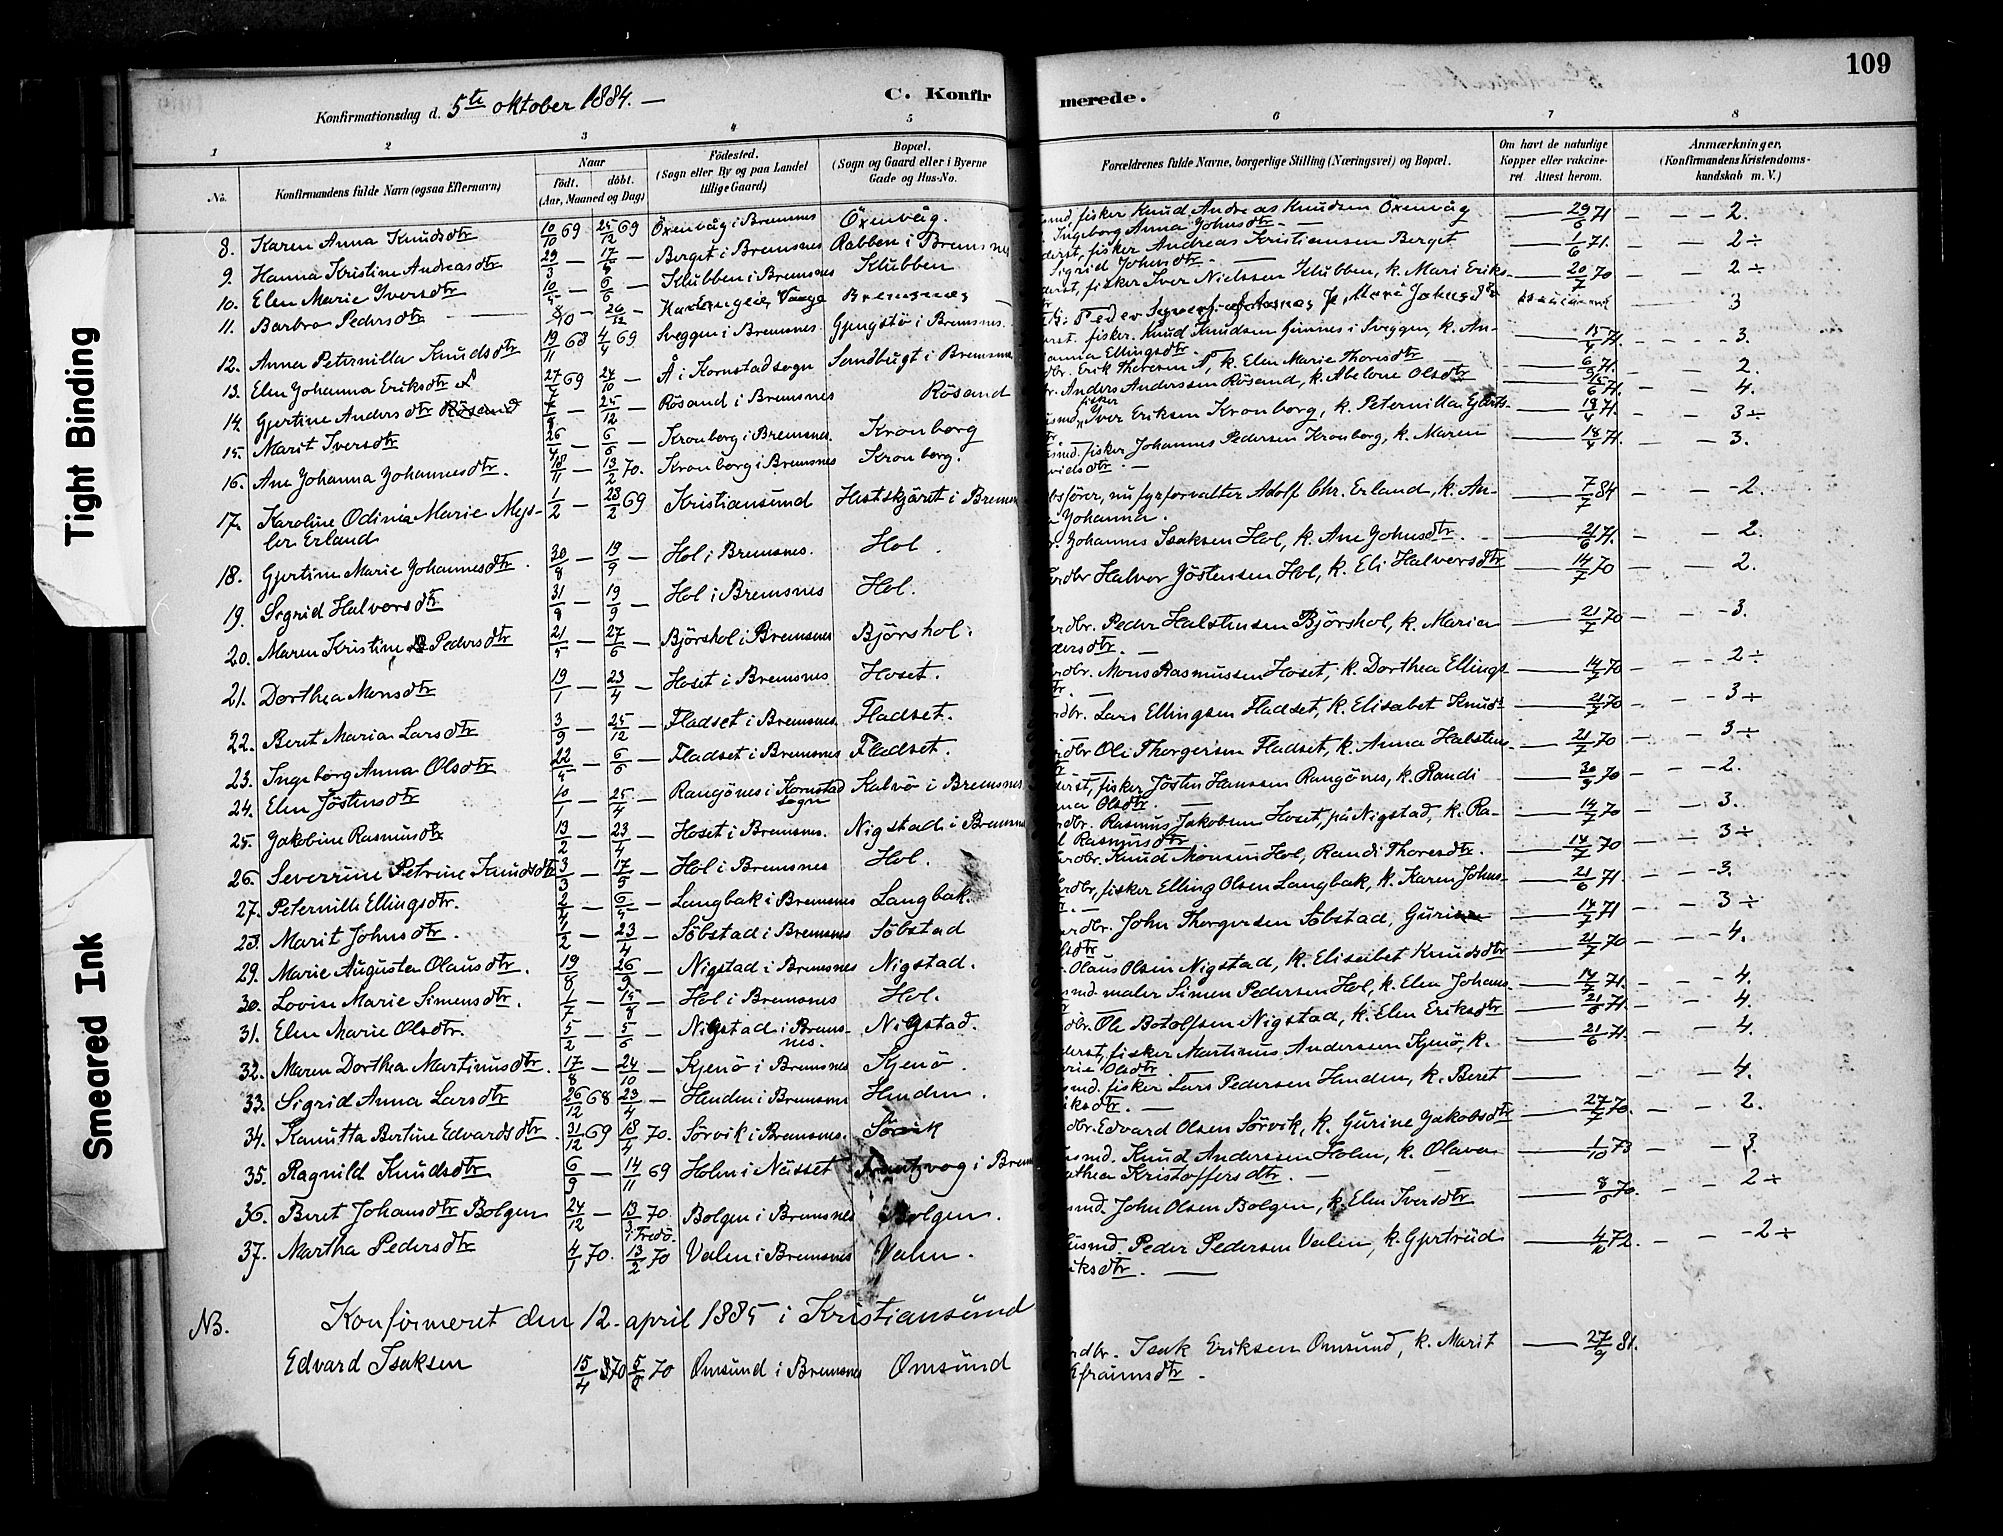 109
Konfirmationsdag d. 5te oktober 1884. —
C. Konfir merede.
1 2 3 4 5 6 7 8
No. Konfirmandens fulde Navn (ogsaa Efternavn)
Naar
födt. döbt.
(Aar, Maaned og Dag)
Födested.
(Sogn eller By og paa Landet
tillige Gaard)
Bopæl.
(Sogn og Gaard eller i Byerne
Gade og Hus-No.
Forældrenes fulde Navne, borgerlige Stilling (Næringsvei) og Bopæl.
Om havt de naturlige
Kopper eller vakcine-
ret. Attest herom.
Anmærkninger,
(Konfirmandens Kristendoms-
kundskab m. V.)
8. Karen Anna Knudsdtr 10/10 69 25/12 69 Öxenvåg i Bremsnes Öxenvåg. fisker Knud Andreas Knudsen Öxenvåg 29/6 71 — — 2.
Ingeborg Anna Johnsdtr. —
9. Hanna Kristine Andreasdtr 29/3 — Berget i Bremsnes Rabben i Bremsnes fisker Andreas Kristiansen Berget 1/6 71. — — 2 ÷
Sigrid Johnsdtr. —
10. Elen Marie Iversdtr 10/5 — 6/6 — Klubben i Bremsnes Klubben fisker Iver Nielssen Klubben, k. Mari Eriks- 20/7 70 — — 2 ÷
11. Barbro Pedersdtr — 26/12 — Bremsnes — 3
12. Anna Peternilla Knudsdtr 19/11 68 4/4 69 Sveggen i Bremsnes Gjengstö i Bremsnes. fisker. Knud Knudsen Ginnes i Sveggen, k. An- 15/4 71. — — 3.
anna Ellingsdtr. —
13. Elen Johanna Eriksdtr Å 27/7 69 24/10 — Å i Kornstad sogn Sandbugt i Bremsnes Erik Thoresen Å, k. Elen Marie Thorsdtr 6/6 71. — — 2.
14. Gjertine Andersdtr Rösand 25/12 — Rösand i Bremsnes Rösand Anders Anderssen Rösand, k. Abelone Olsdtr 71. — — 4.
15. Marit Iversdtr 26/4 — 6/6 — Kronborg i Bremsnes. Kronborg fisker Iver Eriksen Kronborg, k. Peternilla Ejlerts- 18/4 71. — — 3 ÷
16. Ane Johanna Johannesdtr. 18/11 — 13/2 70. Kronborg i Bremsnes Kronborg. fisker Johannes Pedersen Kronborg, k. Maren 18/4 71. — — 3.
vidsdtr. —
17. Karoline Odinia Marie Mejs- 1/2 — 28/2 69 Kristiansund Hestskjæret i Bremsn nu fyrforvalter Adolf Chr. Erland, k. An- 7/7 84 — — 2.
ler Erland Johanna.
18. Gjertine Marie Johannesdtr. 30/8 — 19/9 — Hol i Bremsnes. Hol. Johannes Isaksen Hol, k. Ane Johnsdtr. 21/6 71. — — 2.
19. Sigrid Halvorsdtr 31/8 — 19/9 — Hol i Bremsnes Hol. Halvor Jöstensen Hol, k. Eli Halvorsdtr 14/7 70 — — 2.
20. Maren Kristine Pedersdtr 21/5 — 27/6 — Björshol i Bremsnes Björshol. Peder Halstensen Björshol, k. Maria 21/7 70 — — 3.
dersdtr. —
21. Dorthea Monsdtr 19/1 — 23/4 — Hoset i Bremsnes. Hoset. Mons Rasmussen Hoset, k. Dorthea Ellings- 14/7 70 — — 2 ÷
22. Beret Maria Larsdtr 3/9 — 25/12 — Fladset i Bremsnes. Fladset. Lars Ellingsen Fladset, k. Elisabet Knuds- 21/7 70 — — 3 ÷
23. Ingeborg Anna Olsdtr 22/4 — 6/6 — Fladset i Bremsnes Fladset. Ole Thorgersen Fladset, k. Anna Halstens- 21/7 70 — — 3 ÷
24. Elen Jöstensdtr 10/1 — 25/4 — Rangönes i Kornstad sogn Kalvö i Bremsnes. fisker Jöstin Hanssen Rangönes, k. Randi 30/9 70 — — 2.
Olsdtr. —
25. Jakobine Rasmusdtr 13/2 — 23/4 — Hoset i Bremsnes. Nigstad i Bremsnes Rasmus Jakobsen Hoset, på Nigstad, k. Ra- 14/7 70 — — 3.
Rasmusdtr
26. Severrine Petrine Knudsdtr 3/3 — 17/5 — Hol i Bremsnes Hol. Knud Monsen Hol, Randi Thoresdtr. 14/7 70 — 3 ÷
27. Peternille Ellingsdtr. 2/4 — 6/5 — Langbak i Bremsnes Langbak. fisker Elling Olsen Langbak, k. Karen Johns- 21/6 71 — — 3.
28. Marit Johnsdtr. 1/2 — 23/4 — Söbstad i Bremsnes Söbstad John Thorgersen Söbstad, Gurine 14/7 71 — — 3 ÷
29. Marie Augusta Olausdtr. 19/8 — 26/9 — Nigstad i Bremsnes Nigstad. Olaus Olsen Nigstad, k. Elisabet Knudsdtr 21/7 70 — — 4.
30. Lovise Marie Simensdtr. 1/7 — 15/8 — Hol i Bremsnes Hol. maler Simen Pedersen Hol, k. Elen Johans- 14/7 71. — — 4.
31. Elen Marie Olsdtr. 5/2 — 5/6 — Nigstad i Brems- nes. Nigstad. Ole Botolfsen Nigstad, k. Elen Eriksdtr 21/6 71. — — 4.
32. Maren Dorthea Martinusdtr. 17/8 — 24/10 — Kjenö i Bremsnes Kjenö. fisker Martinus Anderssen Kjenö, k. 21/6 71. — — 4.
Olsdtr
33. Sigrid Anna Larsdtr 26/12 68 23/4 — Henden i Bremsnes Henden. fisker Lars Pedersen Henden, k. Beret — 4.
iksdtr. —
34. Kanutta Bertine Edvardsdtr. 31/12 69 18/4 70. Sörvik i Bremsnes. Sörvik Edvard Olsen Sörvik, k. Gurine Jakobsdtr 27/7 70. — — 2.
35. Ragnild Knudsdtr 6/9 — 14/11 69 Holm i Nässet i Brem Knud Anderssen Holm, k. Olava 1/10 73 — 3.
athea Kristoffersdtr. —
36. Beret Johansdtr Bolgen 24/12 — 13/3 70. Bolgen i Bremsnes Bolgen. John Olsen Bolgen, k. Elen Iversdtr 70. — — 2 ÷
i Fredö.
37. Martha Pedersdtr 4/1 70. 13/2 70 Valen i Bremsnes Valen. Peder Pedersen Valen, k. Gjertrud 4/10 72. — — 2 ÷
iksdtr. —
NB. Konfirmeret den 12. april 1885 i Kristiansund
Edvard Isaksen 15/4 70 5/8 70 Omsund i Bremsnes Omsund Isak Eriksen Omsund, k. Marit — 27/9 81.
Efraimsdtr.
Tight Binding
Smeared Ink